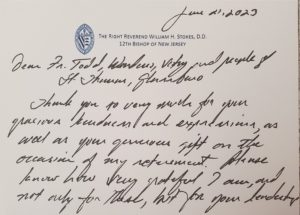 June 21, 2023
THE RIGHT REVEREND WILLIAM H. STOKES, D.D.
12TH BISHOP OF NEW JERSEY
Dear Fr. Todd, Wardens, Vestry and people of
St Thomas, Glassboro
Thank you so very much for your
gracious kindness and expressions, as
well as your generous gift on the
occasion of my retirement. Please
know how very grateful I am, and
not only for these, but for your leadership